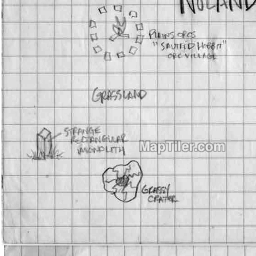 NOLAND
PLAINS ORCS
ORC VILLAGE
GRASSLAND
STRANGE
RECTANGULAR
MONOLITH
MapTiler.com
GRASSY
CRATER